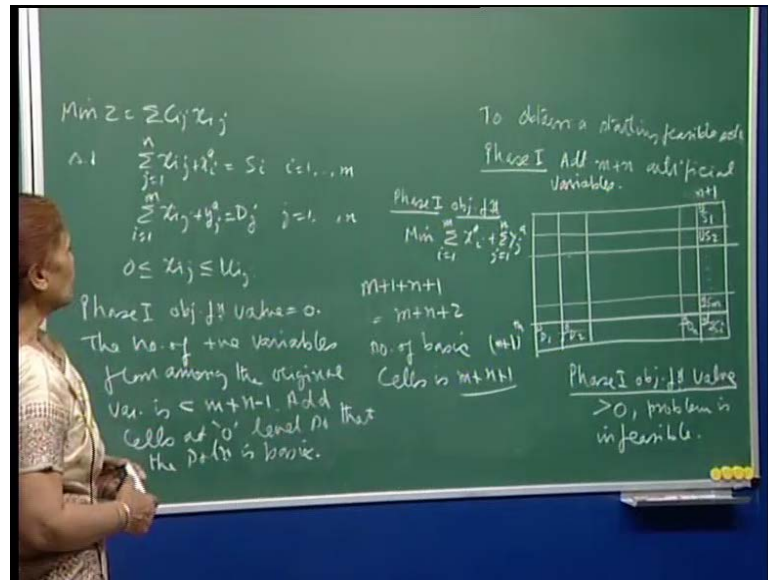 Min Z = Σ Cij xij
s.t. Σ_{j=1}^{n} xij + xi^a = Si i=1,..,m
Σ_{i=1}^{m} xij + yj^a = Dj j=1,..,n
0 ≤ xij ≤ Uij
Phase I obj. fn value = 0.
The no. of +ve variables
from among the original
var. is < m+n-1. Add
cells at '0' level so that
the soln is basic.
Phase I obj. fn
Min Σ_{i=1}^{m} xi^a + Σ_{j=1}^{n} yj^a
m+1+n+1
= m+n+2
no. of basic
cells is m+n+1
To obtain a starting feasible soln
Phase I Add m+n artificial
variables.
n+1
S1
S2
Sm
(m+1)th
D1 D2 Dn
Phase I obj. fn value
>0, problem is
infeasible.